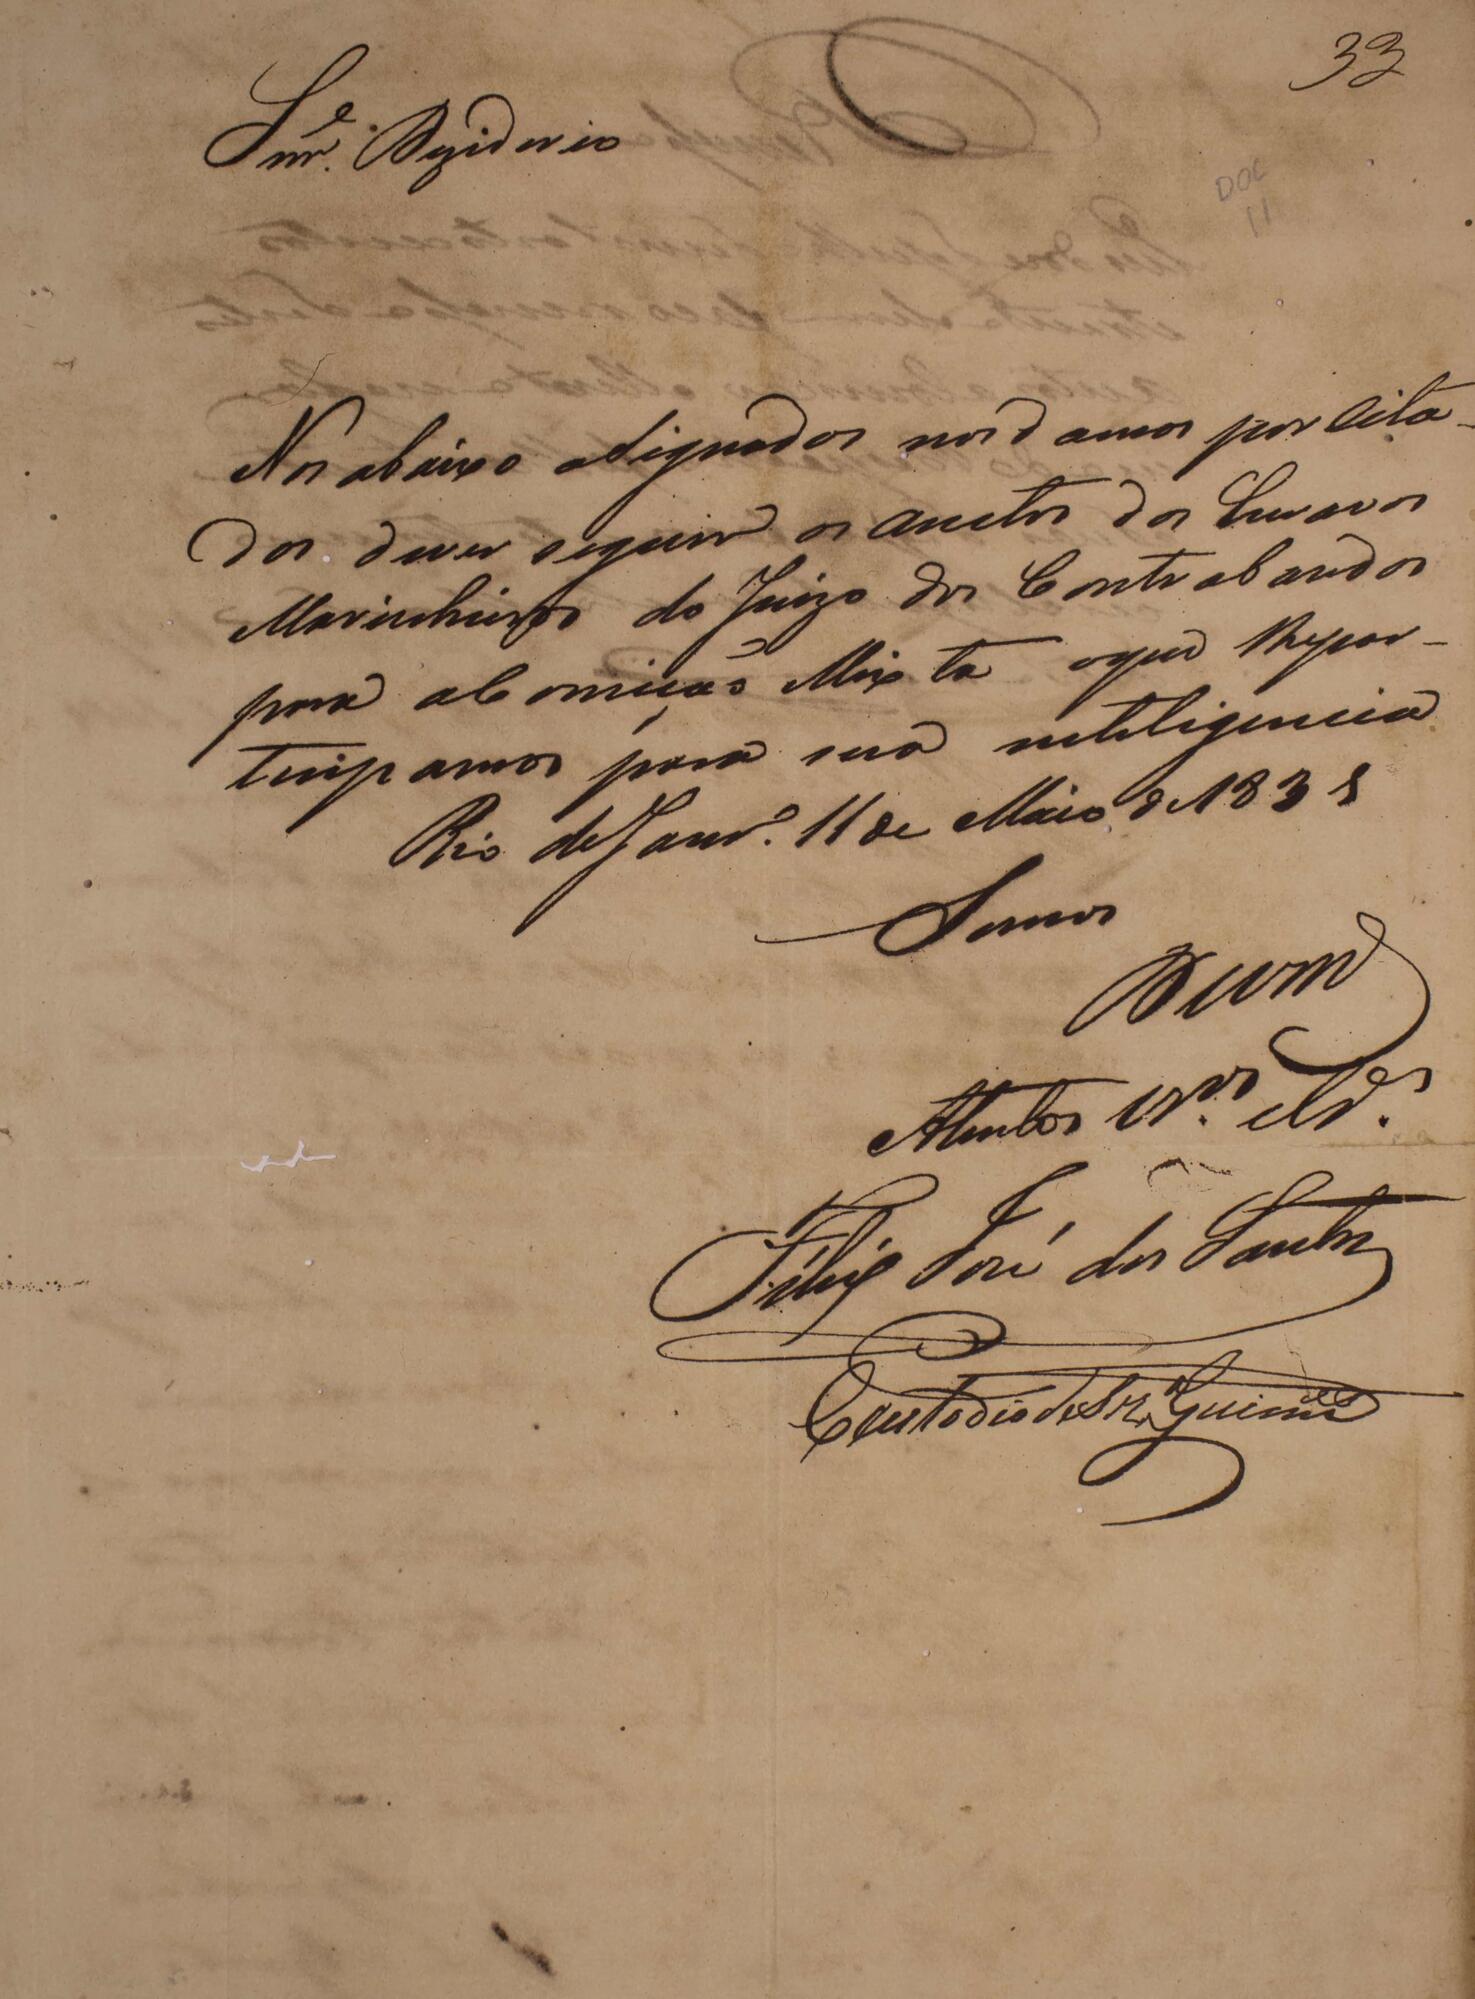 33
DOC
11
Snr.e Deziderio
Nos abaixo asignados nos damos por Cita-
dos. dever seguir os auctos dos Escravos
Marinheiros do Juizo dos Contrabandos
para a Comição Mixta oque Repar-
tuipamos para sua intiligencia
Rio de Janrº. 11 de Maio de 1835
Somos
De VM
Atentos Vres. e Cr.es
Felix José dos Santos
Custodio de Sza. Guimes